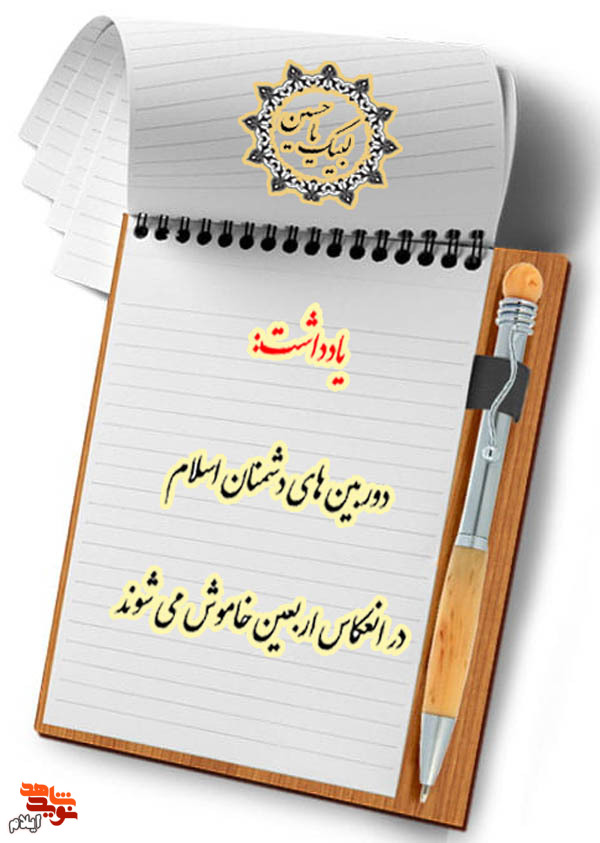 لبیک یا حسین
یادداشت:
دوربین های دشمنان اسلام
در انعکاس اربعین خاموش می شوند
نوید شاهد
ایلام